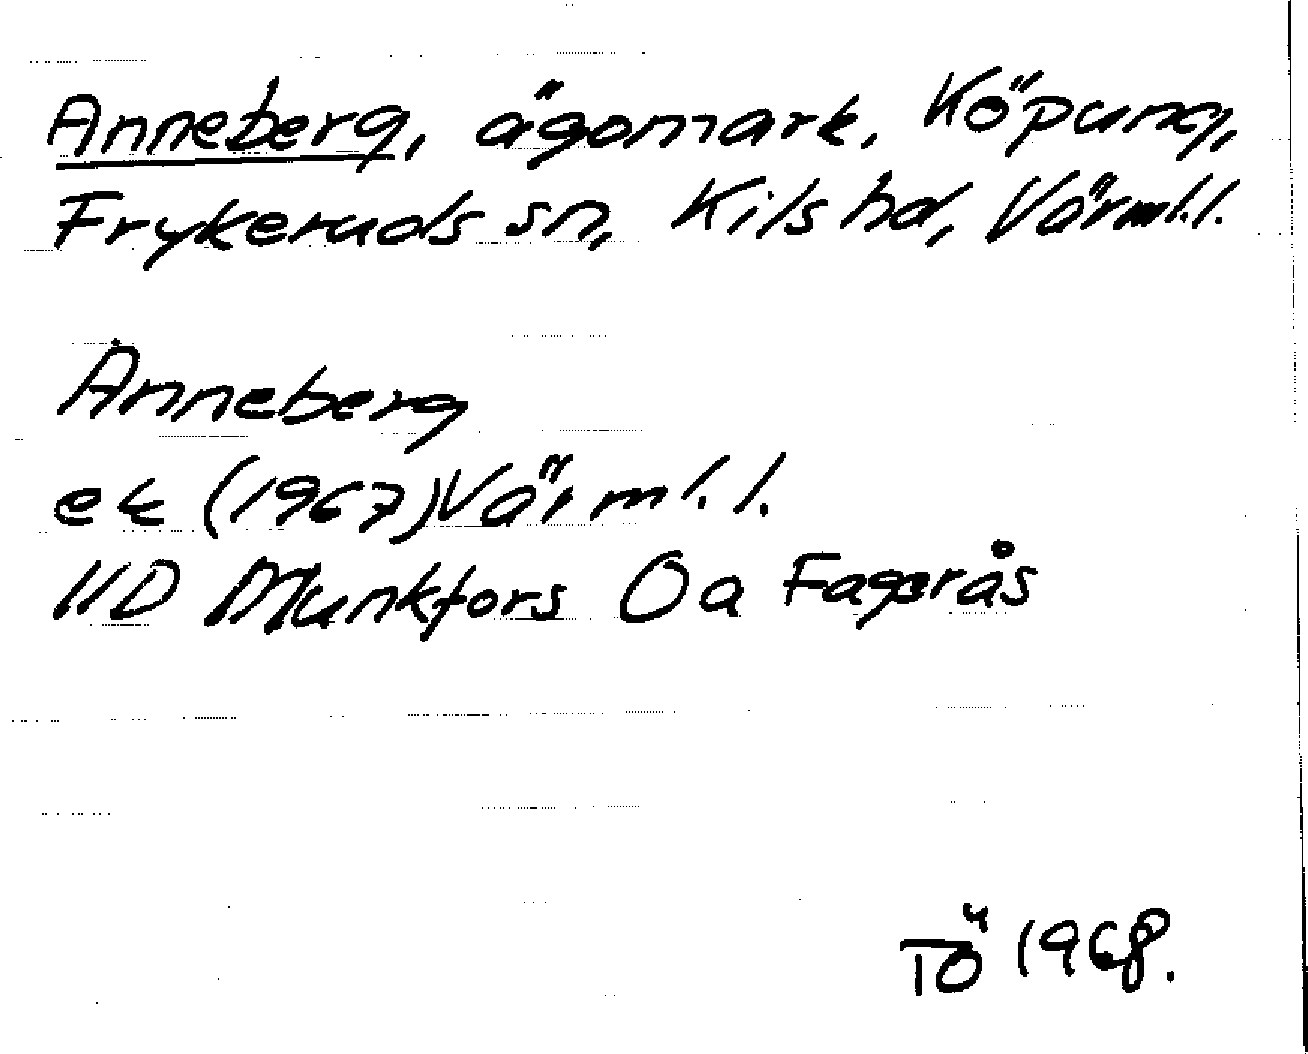 Anneberg, ägomark, Köpung,
Frykeruds sn, Kils hd, Värml.l.
Anneberg
ek (1967) Värml.l.
11D Munkfors Oa Fagerås
TÖ 1968.